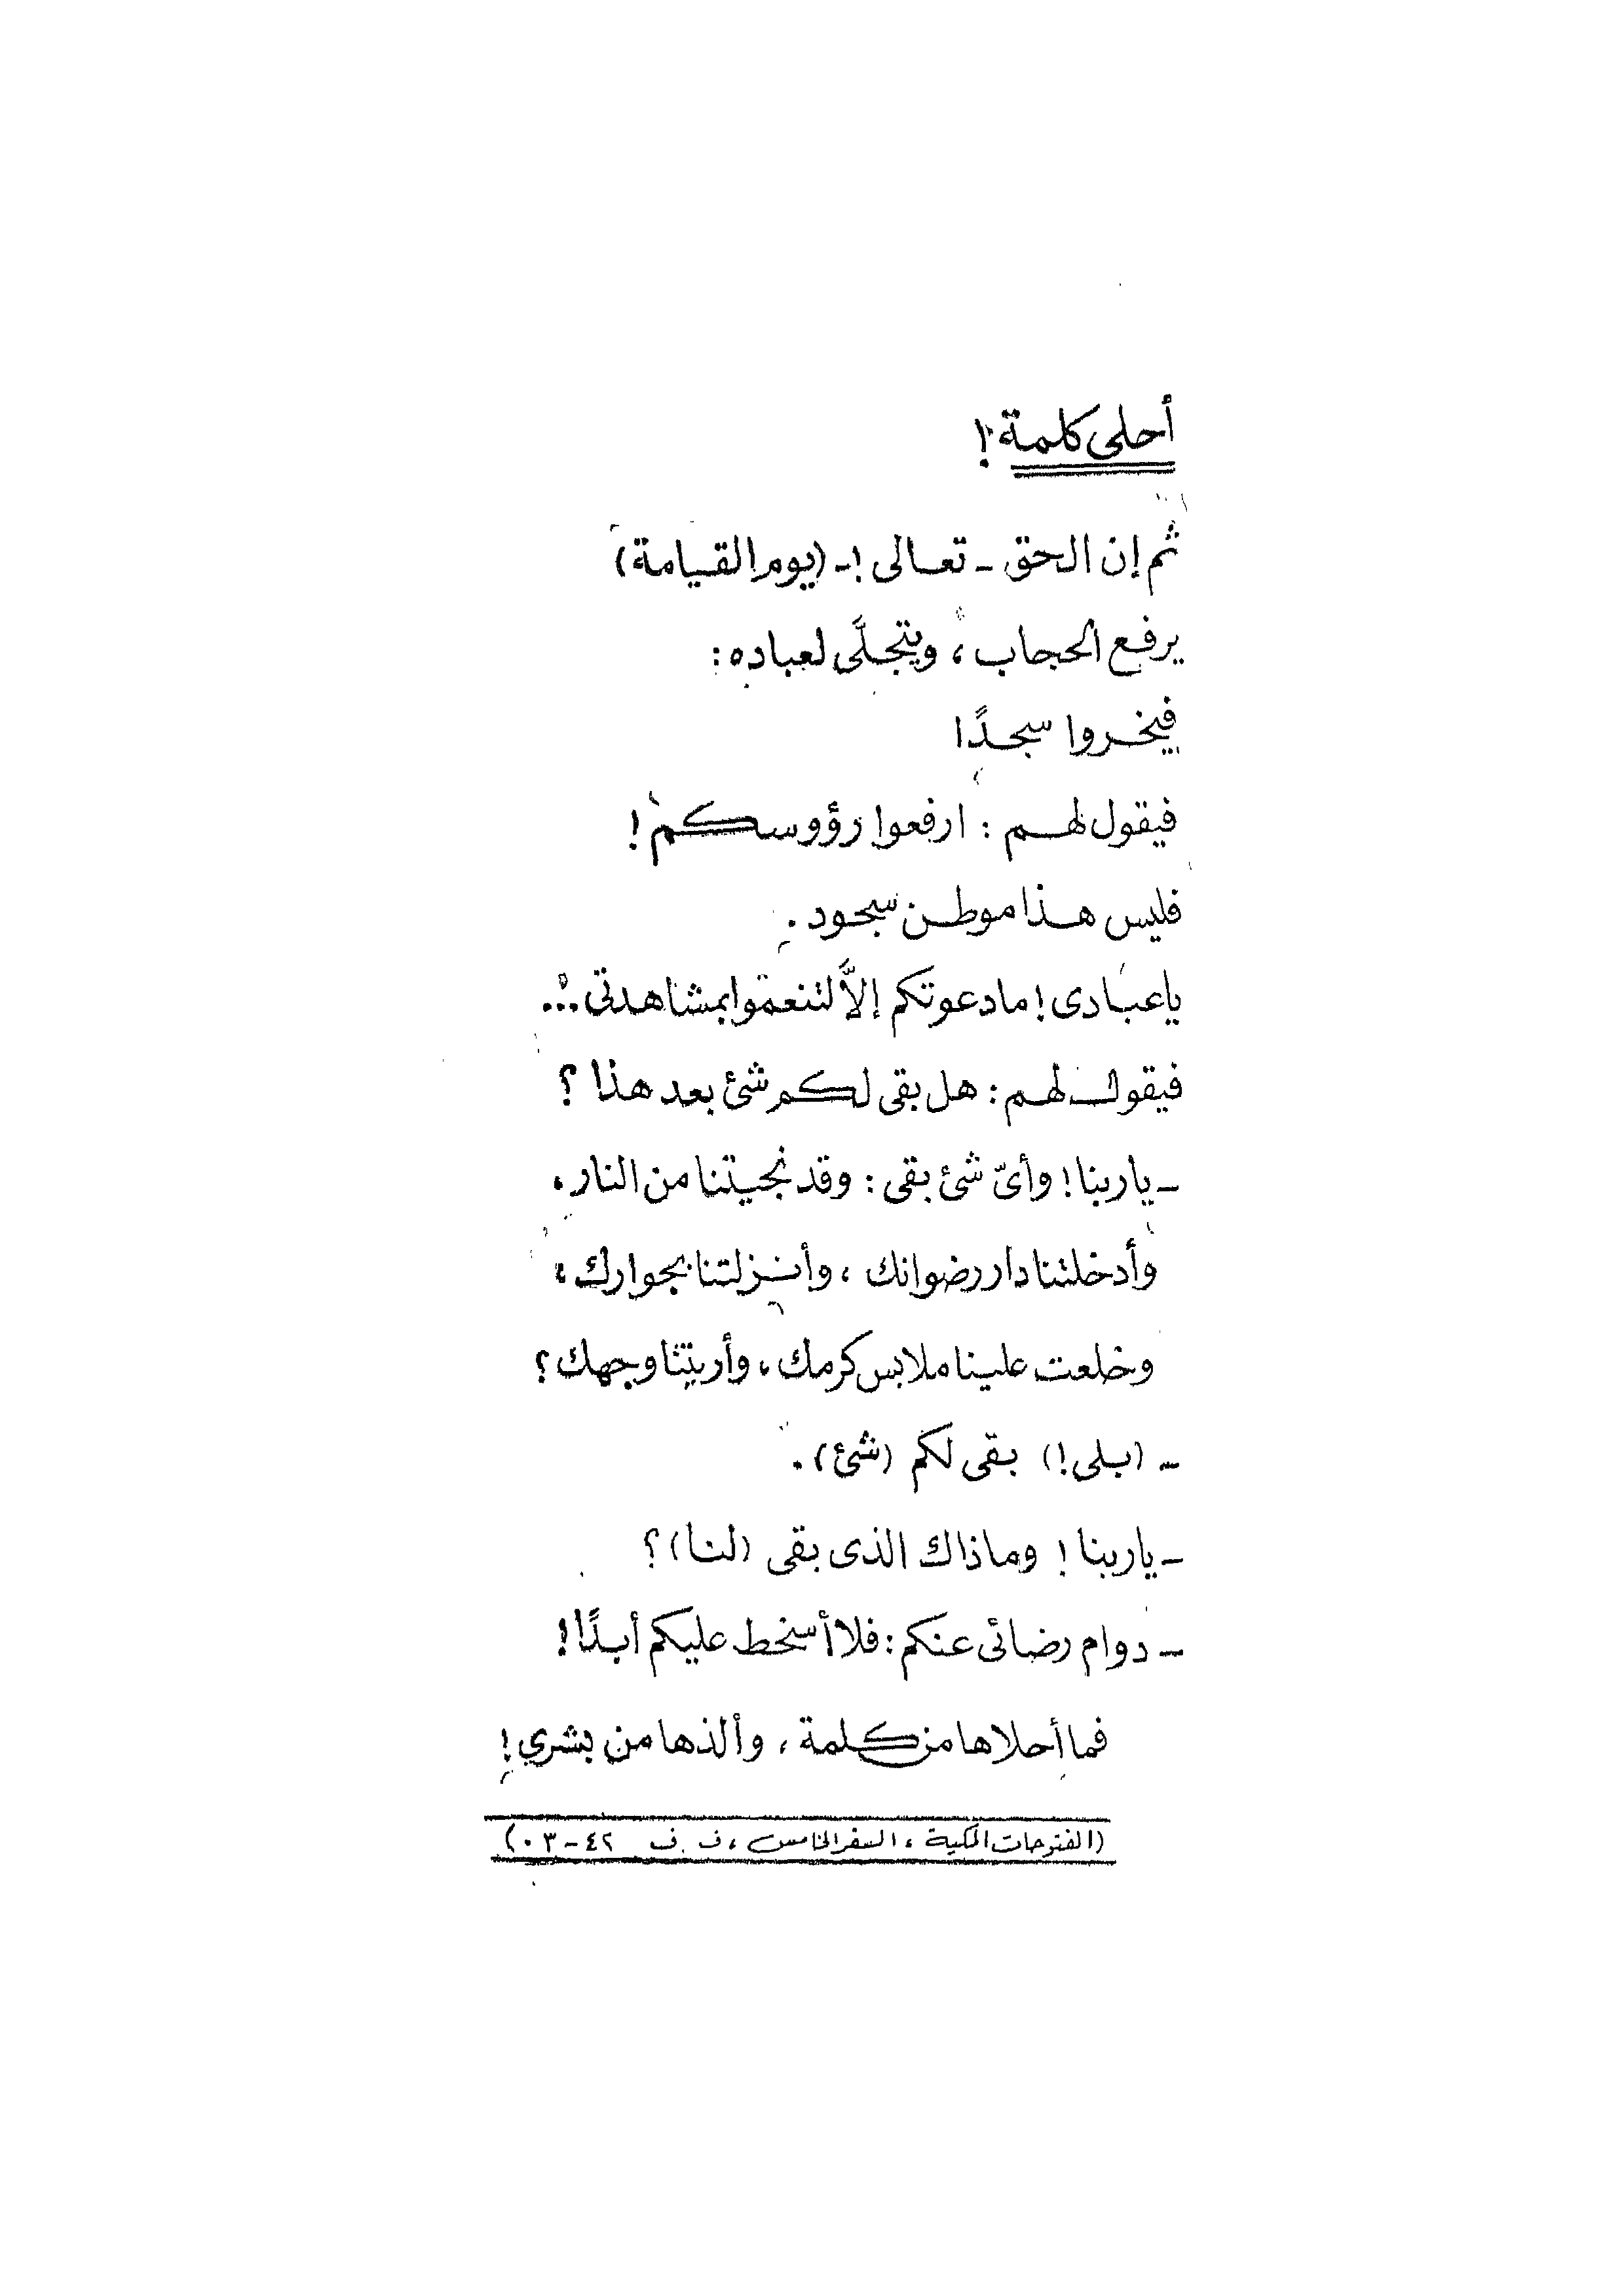 أحلى كلمة!
ثم إن الحق ـ تعالى !ـ (يوم القيامة)
يرفع الحجاب ، ويتجلَّى لعباده :
فيخروا سجدًا
فيقول لهم : ارفعوا رؤوسكم !
فليس هذا موطن سجود .
يا عبادى ! ما دعوتكم إلاَّ لتنعموا بمشاهدتى ...
فيقول لهم : هل بقى لكم شئ بعد هذا ؟
ـ يا ربنا ! وأىّ شئ بقى : وقد نجيتنا من النار ،
وأدخلتنا دار رضوانك ، وأنزلتنا بجوارك ،
وخلعت علينا ملابس كرمك ، وأريتنا وجهك ؟
ـ (بلى !) بقى لكم (شئ) .
ـ يا ربنا ! وما ذاك الذى بقى (لنا) ؟
ـ دوام رضائى عنكم : فلا أسخط عليكم أبدًا !
فما أحلاها من كلمة ، وألذها من بشرى !
(الفتوحات المكية ، السفر الخامس ، ف ف ٤٢-٠٣)